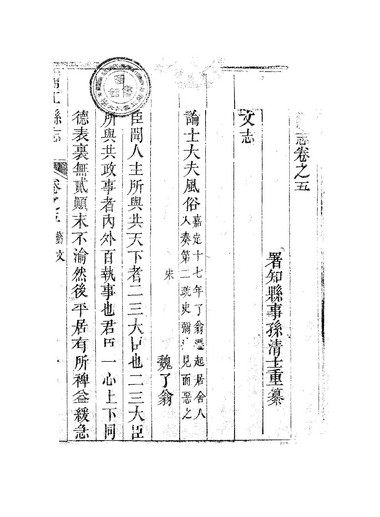 志卷之五
署知縣事孫清士重纂
文志
論士大夫風俗
嘉定十七年了翁起居舍人
入奏第二疏史彌見而惡之
宋
魏了翁
臣聞人主所與共天下者二三大臣也二三大臣
所與共政事者內外百執事也君臣一心上下同
德表裏無貳顛末不渝然後平居有所裨益緩急
江縣志
卷之五
藝文